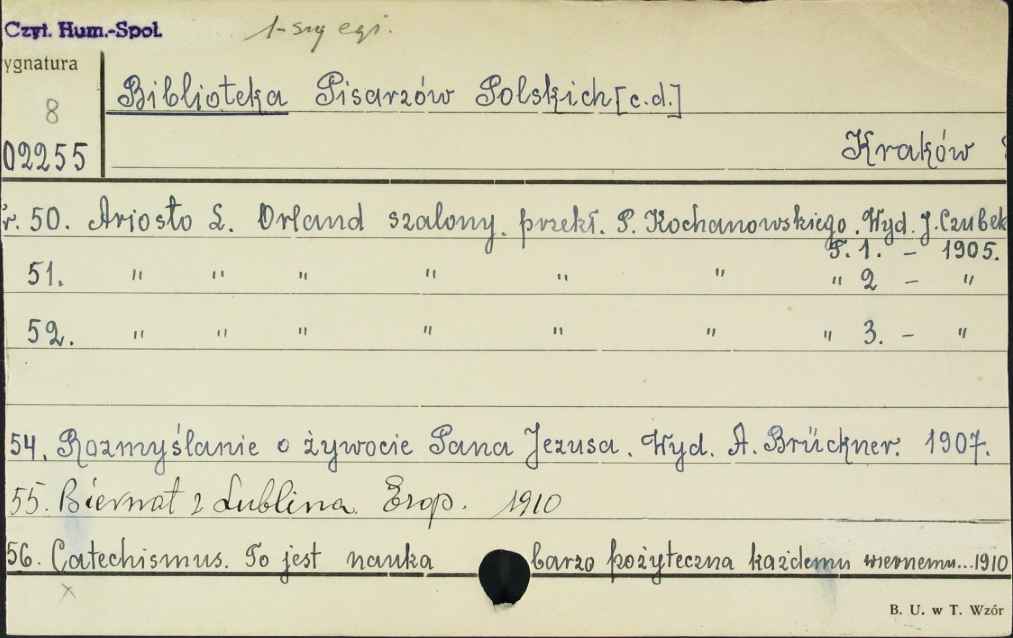 Czyt. Hum.-Społ. 1-szy egz.
ygnatura
8
Biblioteka Pisarzów Polskich [c.d.]
02255
Kraków
r. 50. Ariosto L. Orland szalony. przekł. P. Kochanowskiego. Wyd. J. Czubek
T. 1. - 1905.
51. " " " " " " " 2 - "
52. " " " " " " " 3. - "
54. Rozmyślanie o żywocie Pana Jezusa. Wyd. A. Brückner. 1907.
55. Biernat z Lublina. Ezop. 1910
56. Catechismus. To jest nauka barzo pożyteczna każdemu wiernemu...1910
x
B. U. w T. Wzór